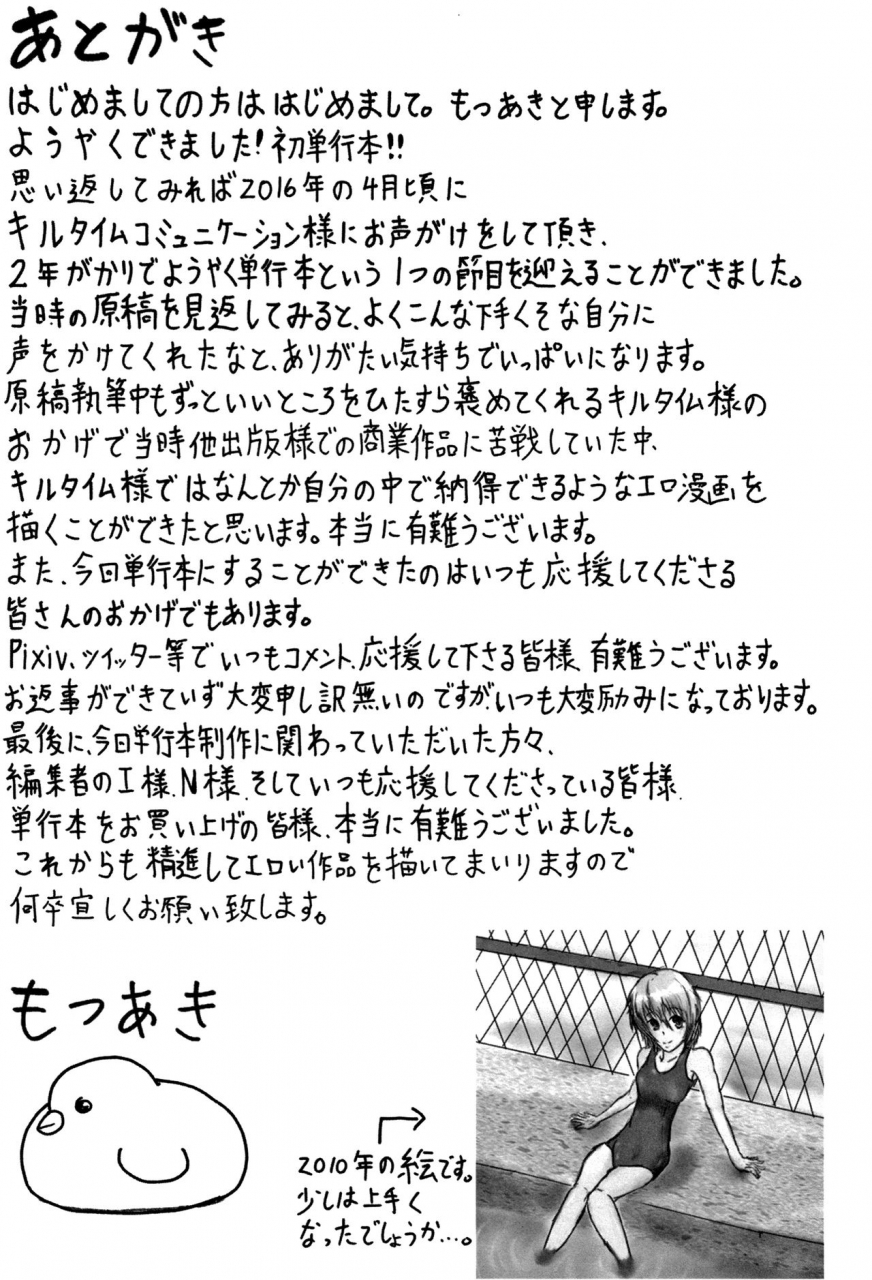 あとがき
はじめましての方ははじめまして。もつあきと申します。
ようやくできました!初単行本!!
思い返してみれば2016年の4月頃に
キルタイムコミュニケーション様にお声がけをして頂き、
2年がかりでようやく単行本という1つの節目を迎えることができました。
当時の原稿を見返してみると、よくこんな下手くそな自分に
声をかけてくれたなと、ありがたい気持ちでいっぱいになります。
原稿執筆中もずっといいところをひたすら褒めてくれるキルタイム様の
おかげで当時他出版様での商業作品に苦戦していた中、
キルタイム様ではなんとか自分の中で納得できるようなエロ漫画を
描くことができたと思います。本当に有難うございます。
また、今回単行本にすることができたのはいつも応援してくださる
皆さんのおかげでもあります。
Pixiv、ツイッター等でいつもコメント、応援して下さる皆様、有難うございます。
お返事ができていず大変申し訳無いのですが、いつも大変励みになっております。
最後に、今回単行本制作に関わっていただいた方々、
編集者のI様、N様、そしていつも応援してくださっている皆様、
単行本をお買い上げの皆様、本当に有難うございました。
これからも精進してエロい作品を描いてまいりますので
何卒宜しくお願い致します。
もつあき
2010年の絵です。
少しは上手く
なったでしょうか…。